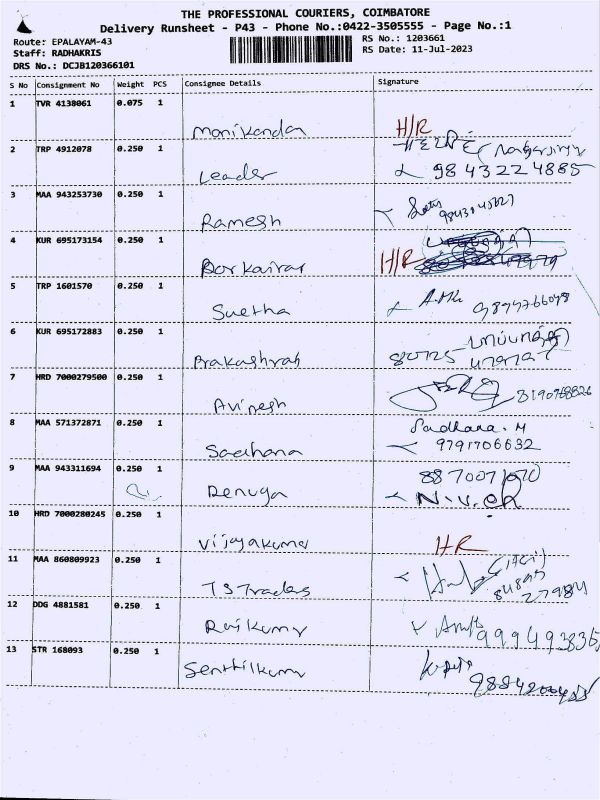 THE PROFESSIONAL COURIERS, COIMBATORE
Delivery Runsheet - P43 - Phone No.:0422-3505555 - Page No.:1
Route: EPALAYAM-43 RS No.: 1203661
Staff: RADHAKRIS RS Date: 11-Jul-2023
DRS No.: DCJB120366101
S No Consignment No Weight PCS Consignee Details Signature
1 TVR 4138061 0.075 1
Monikandan H/R
2 TRP 4912078 0.250 1
Leader 98 43 22 4885
3 MAA 943253730 0.250 1
Ramesh
4 KUR 695173154 0.250 1
H/R
5 TRP 1601570 0.250 1
Suetha
6 KUR 695172883 0.250 1
Prakashrah 80725
7 HRD 7000279500 0.250 1
Avinesh
8 MAA 571372871 0.250 1 Sadhana. M
Sadhana 9791706632
9 MAA 943311694 0.250 1
Renuga
10 HRD 7000280245 0.250 1
Vijayakumar HR
11 MAA 860809923 0.250 1
TS Trades
12 DDG 4881581 0.250 1
Rajkumar
13 STR 168093 0.250 1
Senthilkumar